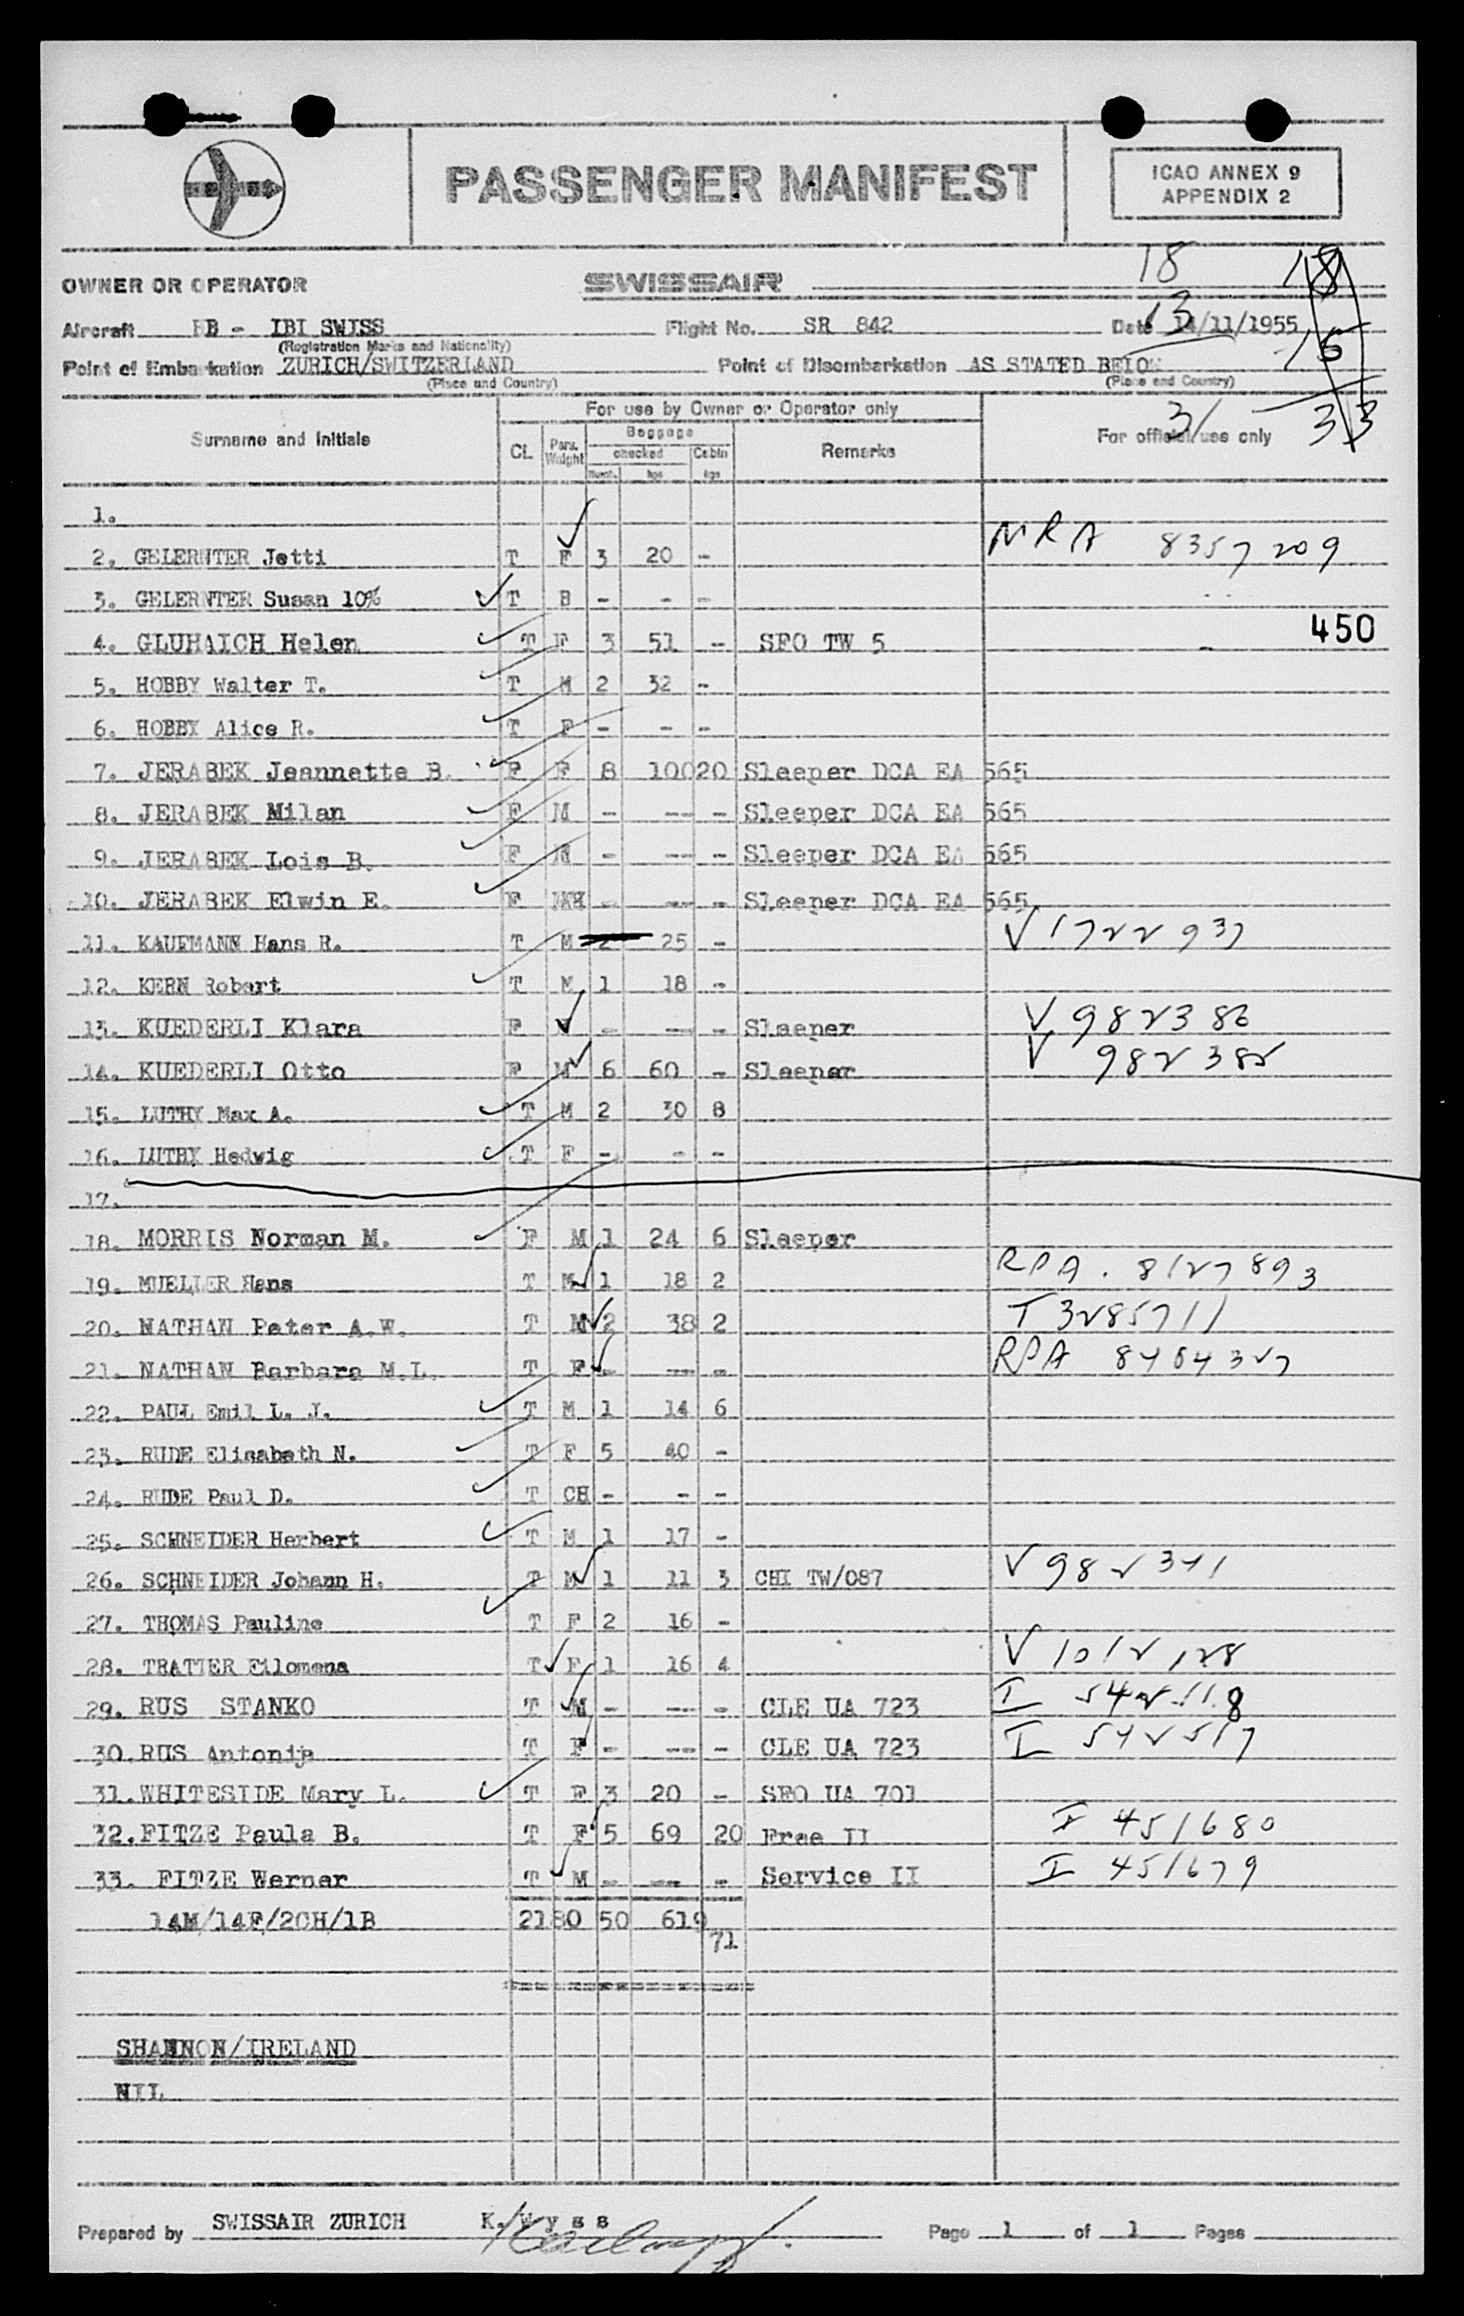 PASSENGER MANIFEST
ICAO ANNEX 9
APPENDIX 2
18 18
OWNER OR OPERATOR SWISSAIR
13 15
Aircraft HB - IBI SWISS Flight No. SR 842 Date 14/11/1955
(Registration Marks and Nationality)
Point of Embarkation ZURICH/SWITZERLAND Point of Disembarkation AS STATED BELOW
(Place and Country) (Place and Country)
31 33
Surname and Initials For use by Owner or Operator only For official use only
CL. Pass. Weight Baggage Remarks
checked Cabin
Num. kgs kgs
1.
2. GELERNTER Jetti T F 3 20 - NRA 8357209
3. GELERNTER Susan 10% T B - - -
450
4. GLUHAICH Helen T F 3 51 - SFO TW 5
5. HOBBY Walter T. T M 2 32 -
6. HOBBY Alice R. T F - - -
7. JERABEK Jeannette B. F F 8 100 20 Sleeper DCA EA 565
8. JERABEK Milan F M - --- - Sleeper DCA EA 565
9. JERABEK Lois B. F - --- - Sleeper DCA EA 565
10. JERABEK Elwin E. F - --- - Sleeper DCA EA 565
11. KAUFMANN Hans R. T M 2 25 - V 1722937
12. KERN Robert T M 1 18 -
13. KUEDERLI Klara F - --- - Sleeper V 982386
14. KUEDERLI Otto F M 6 60 - Sleeper V 982385
15. LUTHY Max A. T M 2 30 8
16. LUTHY Hedwig T F - - -
17.
18. MORRIS Norman M. F M 1 24 6 Sleeper
19. MUELLER Hans T M 1 18 2 RPA. 8127893
20. NATHAN Peter A.W. T M 2 38 2 T 3285711
21. NATHAN Barbara M.L. T F - --- - RPA 8404327
22. PAUL Emil L. J. T M 1 14 6
23. RUDE Elisabeth N. T F 5 40 -
24. RUDE Paul D. T CH - - -
25. SCHNEIDER Herbert T M 1 17 -
26. SCHNEIDER Johann H. T M 1 11 3 CHI TW/087 V 982341
27. THOMAS Pauline T F 2 16 -
28. TRATTER Filomena T F 1 16 4 V 1012128
29. RUS STANKO T M - --- - CLE UA 723 I 542518
30. RUS Antonija T F - --- - CLE UA 723 I 542517
31. WHITESIDE Mary L. T F 3 20 - SFO UA 701
32. FITZE Paula B. T F 5 69 20 Free II I 451680
33. FITZE Werner T M - --- - Service II I 451679
14M/14F/2CH/1B 2180 50 619
71
SHANNON/IRELAND
NIL
Prepared by SWISSAIR ZURICH K. Wyss Page 1 of 1 Pages